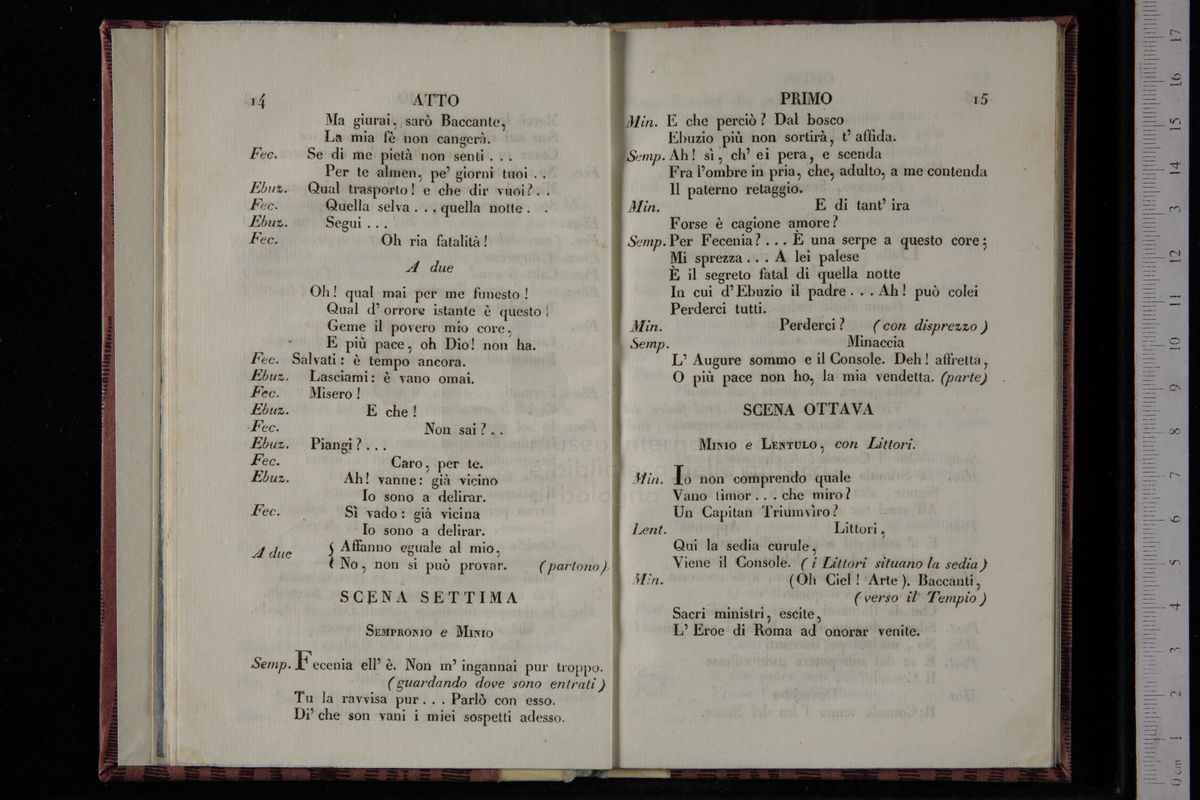 14 ATTO
Ma giurai, sarò Baccante,
La mia fè non cangerà.
Fec. Se di me pietà non senti . . .
Per te almen, pe' giorni tuoi . .
Ebuz. Qual trasporto! e che dir vuoi? . .
Fec. Quella selva . . . quella notte . .
Ebuz. Segui . . .
Fec. Oh ria fatalità!
A due
Oh! qual mai per me funesto!
Qual d' orrore istante è questo!
Geme il povero mio core,
E più pace, oh Dio! non ha.
Fec. Salvati: è tempo ancora.
Ebuz. Lasciami: è vano omai.
Fec. Misero!
Ebuz. E che!
Fec. Non sai? . .
Ebuz. Piangi? . . .
Fec. Caro, per te.
Ebuz. Ah! vanne: già vicino
Io sono a delirar.
Fec. Sì vado: già vicina
Io sono a delirar.
A due { Affanno eguale al mio,
No, non si può provar. (partono)
SCENA SETTIMA
Sempronio e Minio
Semp. Fecenia ell' è. Non m' ingannai pur troppo.
(guardando dove sono entrati)
Tu la ravvisa pur . . . Parlò con esso.
Di' che son vani i miei sospetti adesso.
PRIMO 15
Min. E che perciò? Dal bosco
Ebuzio più non sortirà, t' affida.
Semp. Ah! sì, ch' ei pera, e scenda
Fra l'ombre in pria, che, adulto, a me contenda
Il paterno retaggio.
Min. E di tant' ira
Forse è cagione amore?
Semp. Per Fecenia? . . . È una serpe a questo core;
Mi sprezza . . . A lei palese
È il segreto fatal di quella notte
In cui d' Ebuzio il padre . . . Ah! può colei
Perderci tutti.
Min. Perderci? (con disprezzo)
Semp. Minaccia
L' Augure sommo e il Console. Deh! affretta,
O più pace non ho, la mia vendetta. (parte)
SCENA OTTAVA
Minio e Lentulo, con Littori.
Min. Io non comprendo quale
Vano timor . . . che miro?
Un Capitan Triumviro?
Lent. Littori,
Qui la sedia curule,
Viene il Console. (i Littori situano la sedia)
Min. (Oh Ciel! Arte). Baccanti,
(verso il Tempio)
Sacri ministri, escite,
L' Eroe di Roma ad onorar venite.
0 cm 1 2 3 4 5 6 7 8 9 10 11 12 13 14 15 16 17